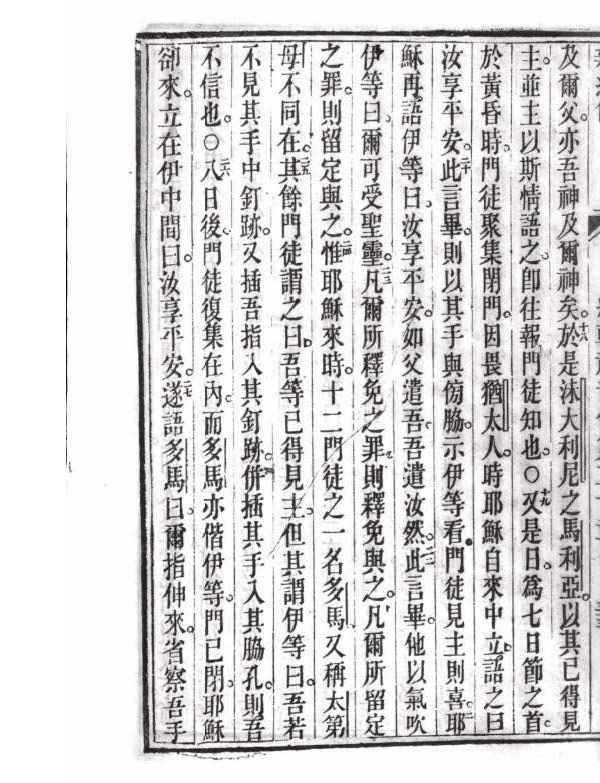 及爾父亦吾神及爾神矣。十八於是沬大利尼之馬利亞以其已得見
主。並主以斯情語之。卽往報門徒知也。○十九又是日爲七日節之首。
於黃昏時。門徒聚集閉門。因畏猶太人。時耶穌自來中立。語之曰
汝享平安。二十此言畢。則以其手與傍脇。示伊等看。門徒見主則喜。耶
穌再語伊等曰。汝享平安。如父遣吾。吾遣汝然。二二此言畢。他以氣吹
伊等曰。爾可受聖靈。二三凡爾所釋免之罪則釋免與之。凡爾所留定
之罪。則留定與之。二四惟耶穌來時。十二門徒之一名多馬又稱太第
母不同在。二五其餘門徒謂之曰。吾等已得見主。但其謂伊等曰。吾若
不見其手中釘跡。又插吾指入其釘跡。併插其手入其脇孔。則吾
不信也。○二六八日後。門徒復集在內。而多馬亦偕伊等。門已閉。耶穌
卻來。立在伊中間曰。汝享平安。二七遂語多馬曰。爾指伸來。省察吾手